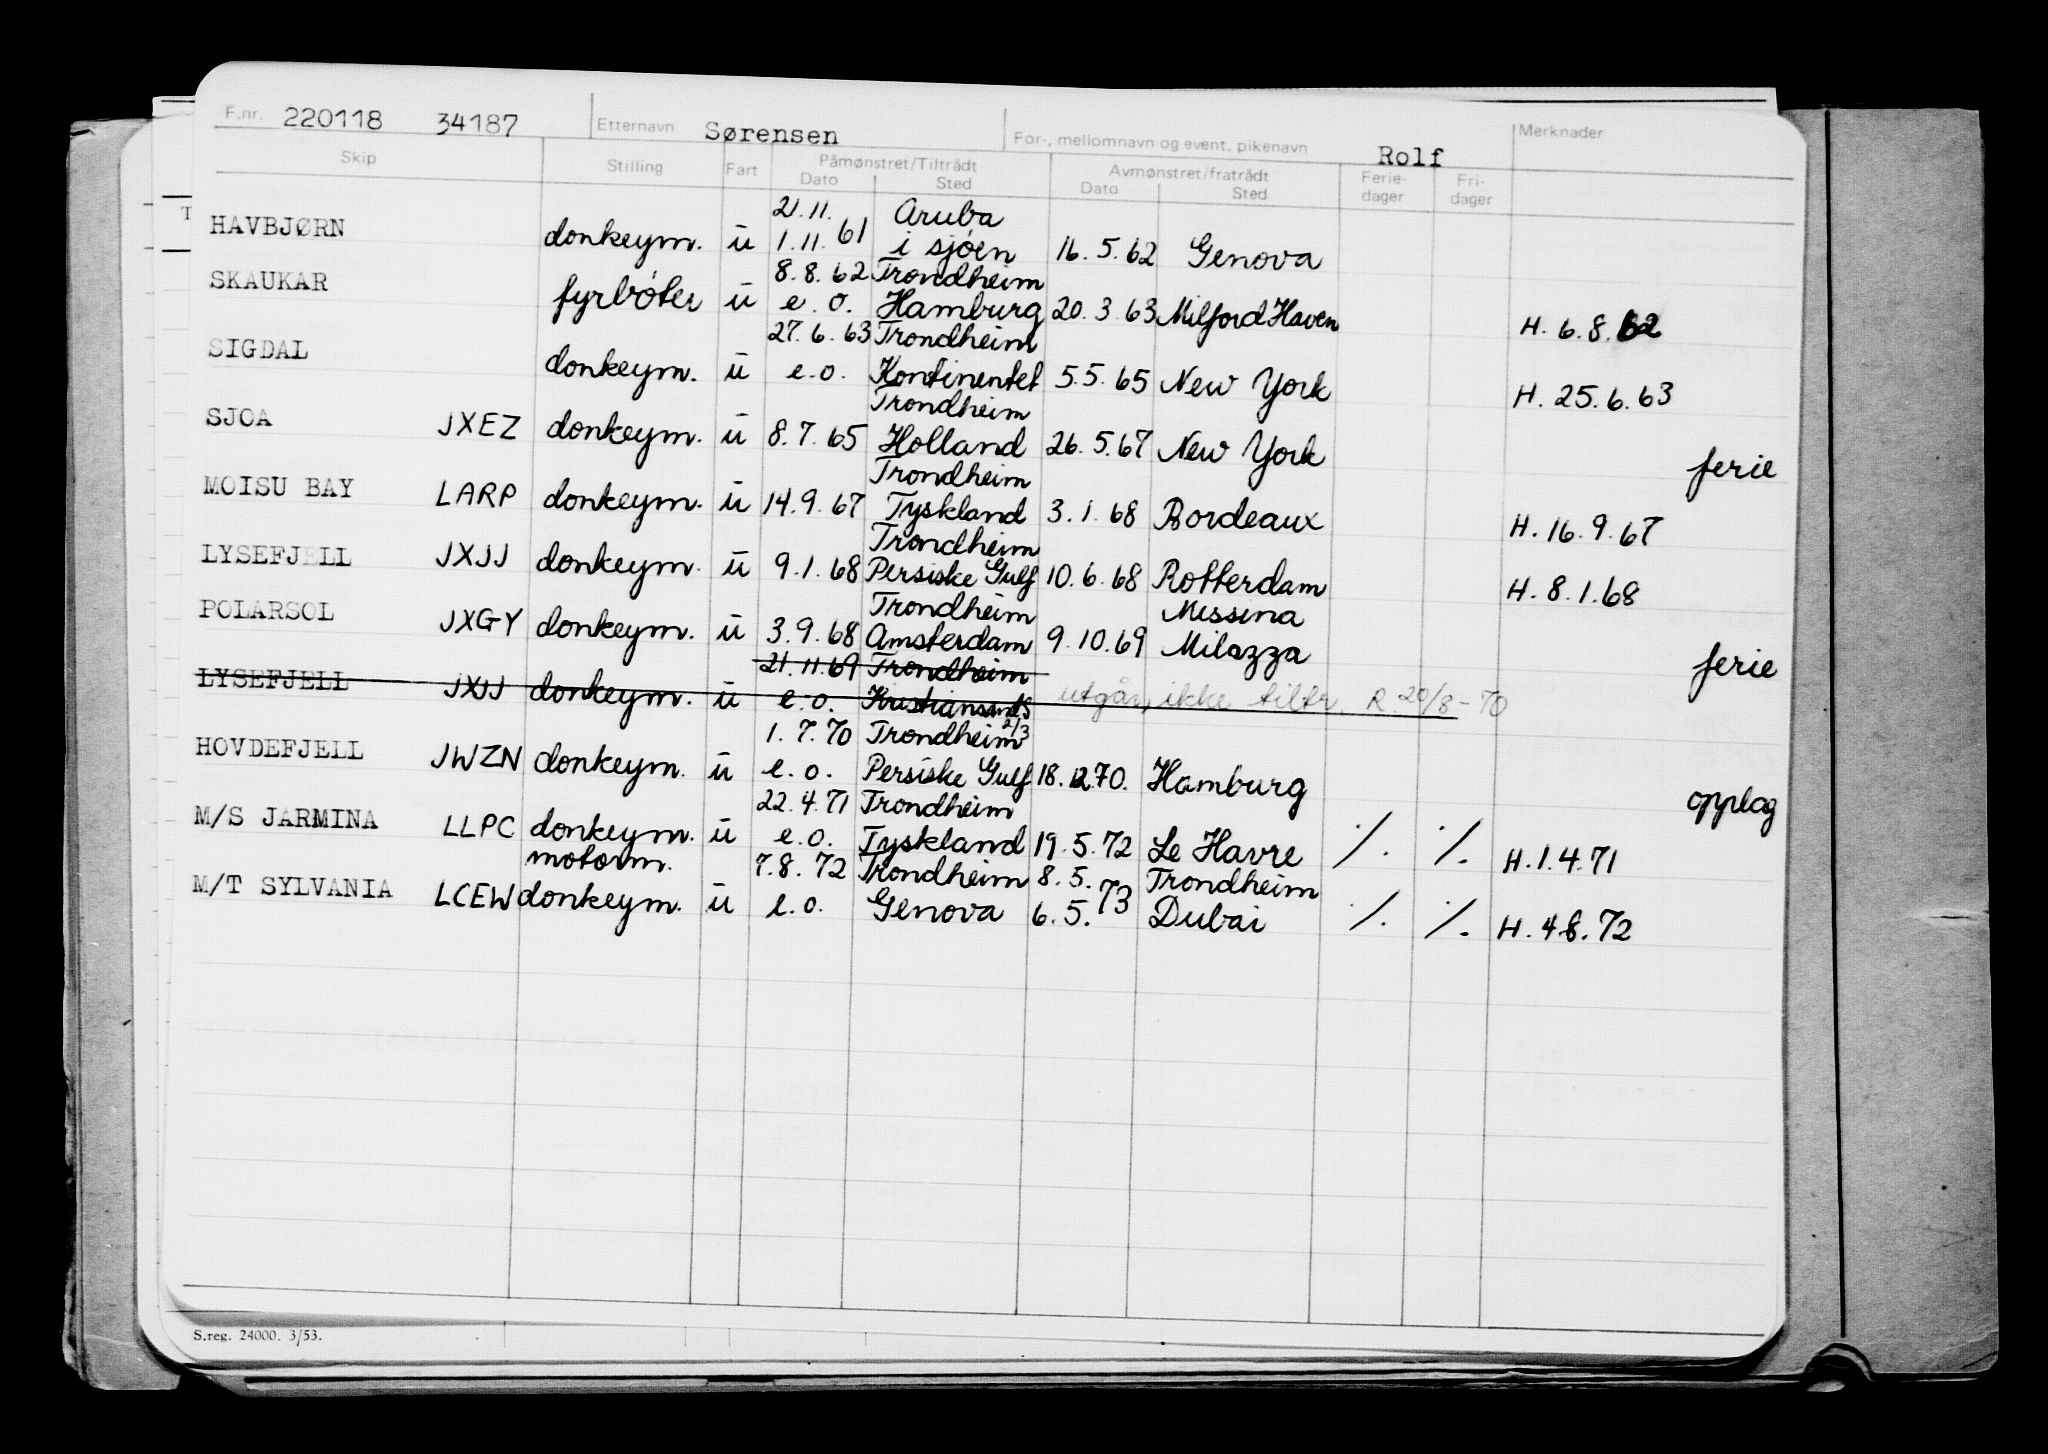 F.nr. 220118 34187 Etternavn Sørensen For-, mellomnavn og event. pikenavn Rolf Merknader
Skip Stilling Fart Påmønstret/Tiltrådt Avmønstret/fratrådt Ferie- Fri-
Dato Sted Dato Sted dager dager
21.11. Aruba
HAVBJØRN donkeym. u 1.11.61 i sjøen 16.5.62 Genova
8.8.62 Trondheim
SKAUKAR fyrbøter u e.o. Hamburg 20.3.63 Milford Haven H. 6.8.62
27.6.63 Trondheim
SIGDAL donkeym. u e.o. Kontinentet 5.5.65 New York H. 25.6.63
Trondheim
SJOA JXEZ donkeym. u 8.7.65 Holland 26.5.67 New York ferie
Trondheim
MOISU BAY LARP donkeym. u 14.9.67 Tyskland 3.1.68 Bordeaux H. 16.9.67
Trondheim
LYSEFJELL JXJJ donkeym. u 9.1.68 Persiske Gulf 10.6.68 Rotterdam H. 8.1.68
Trondheim Messina
POLARSOL JXGY donkeym. u 3.9.68 Amsterdam 9.10.69 Milazza ferie
21.11.69 Trondheim
LYSEFJELL JXJJ donkeym. u e.o. Kristiansand S utgår, ikke tiltr. R. 20/8-70
1.7.70 Trondheim 2/3
HOVDEFJELL JWZN donkeym. u e.o. Persiske Gulf 18.12.70. Hamburg opplag
22.4.71 Trondheim
M/S JARMINA LLPC donkeym. u e.o. Tyskland 19.5.72 Le Havre ./. ./. H. 1.4.71
motorm. 7.8.72 Trondheim 8.5. Trondheim
M/T SYLVANIA LCEW donkeym. u e.o. Genova 6.5.73 Dubai ./. ./. H. 4.8.72
S.reg. 24000. 3/53.